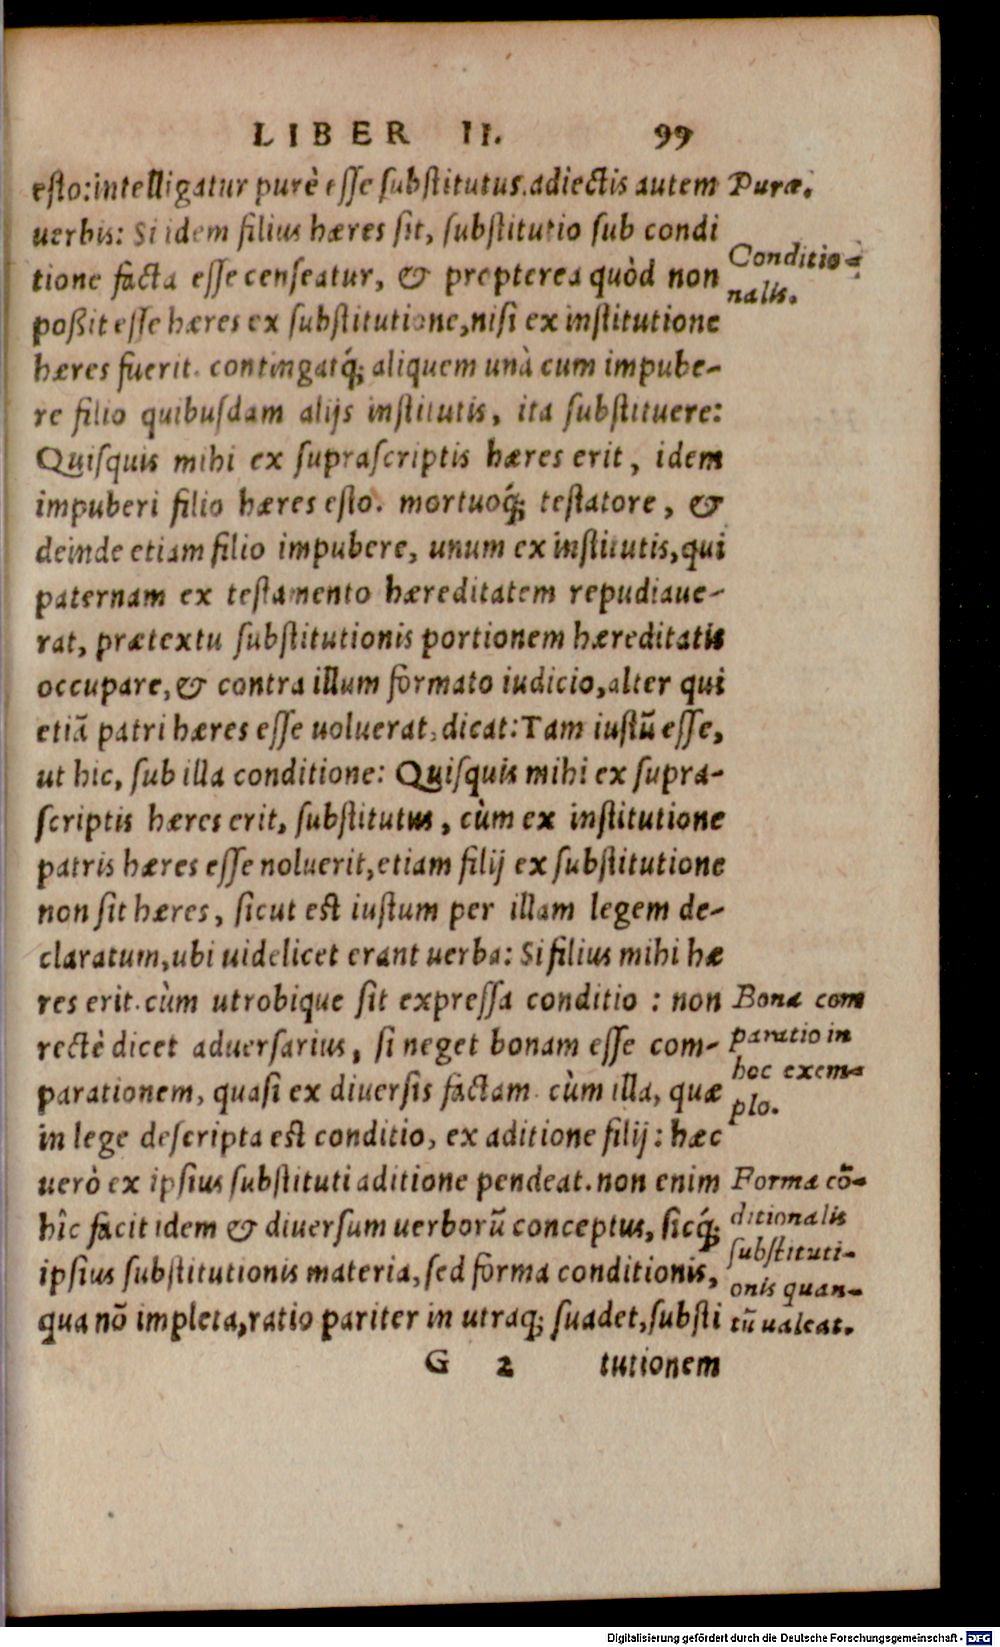 LIBER II. 99
esto: intelligatur purè esse substitutus. adiectis autem
uerbis: Si idem filius hæres sit, substitutio sub condi
tione facta esse censeatur, & propterea quòd non
poßit esse hæres ex substitutione, nisi ex institutione
hæres fuerit. contingatq́; aliquem unà cum impube-
re filio quibusdam alijs institutis, ita substituere:
Quisquis mihi ex suprascriptis hæres erit, idem
impuberi filio hæres esto. mortuoq́; testatore, &
deinde etiam filio impubere, unum ex institutis, qui
paternam ex testamento hæreditatem repudiaue-
rat, prætextu substitutionis portionem hæreditatis
occupare, & contra illum formato iudicio, alter qui
etiã patri hæres esse uoluerat, dicat: Tam iustũ esse,
ut hic, sub illa conditione: Quisquis mihi ex supra-
scriptis hæres erit, substitutus, cùm ex institutione
patris hæres esse noluerit, etiam filij ex substitutione
non sit hæres, sicut est iustum per illam legem de-
claratum, ubi uidelicet erant uerba: Si filius mihi hæ
res erit. cùm utrobique sit expressa conditio: non
rectè dicet aduersarius, si neget bonam esse com-
parationem, quasi ex diuersis factam. cùm illa, quæ
in lege descripta est conditio, ex aditione filij: hæc
uerò ex ipsius substituti aditione pendeat. non enim
hîc facit idem & diuersum uerborũ conceptus, sicq́;
ipsius substitutionis materia, sed forma conditionis,
qua nõ impleta, ratio pariter in utraq; suadet, substi
G 2 tutionem
Puræ.
Conditio-
nalis.
Bona com
paratio in
hoc exem-
plo.
Forma cõ-
ditionalis
substituti-
onis quan-
tũ ualeat.
Digitalisierung gefördert durch die Deutsche Forschungsgemeinschaft - DFG